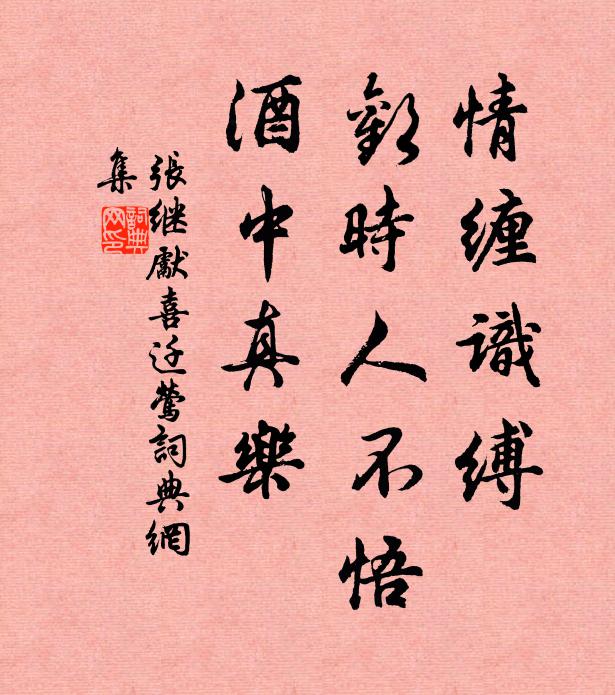 情纏識縛
歎時人不悟
酒中真樂
張继獻喜迁鶯詞典網
集
詞典
网印